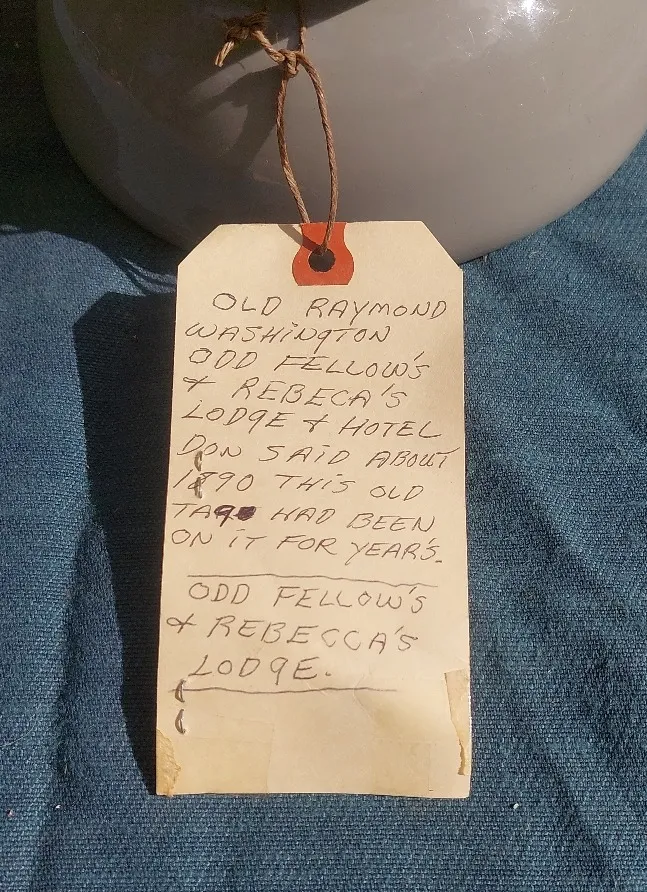 OLD RAYMOND
WASHINGTON
ODD FELLOW'S
& REBECA'S
LODGE & HOTEL
DON SAID ABOUT
1890 THIS OLD
TAG HAD BEEN
ON IT FOR YEAR'S.
ODD FELLOW'S
& REBECCA'S
LODGE.